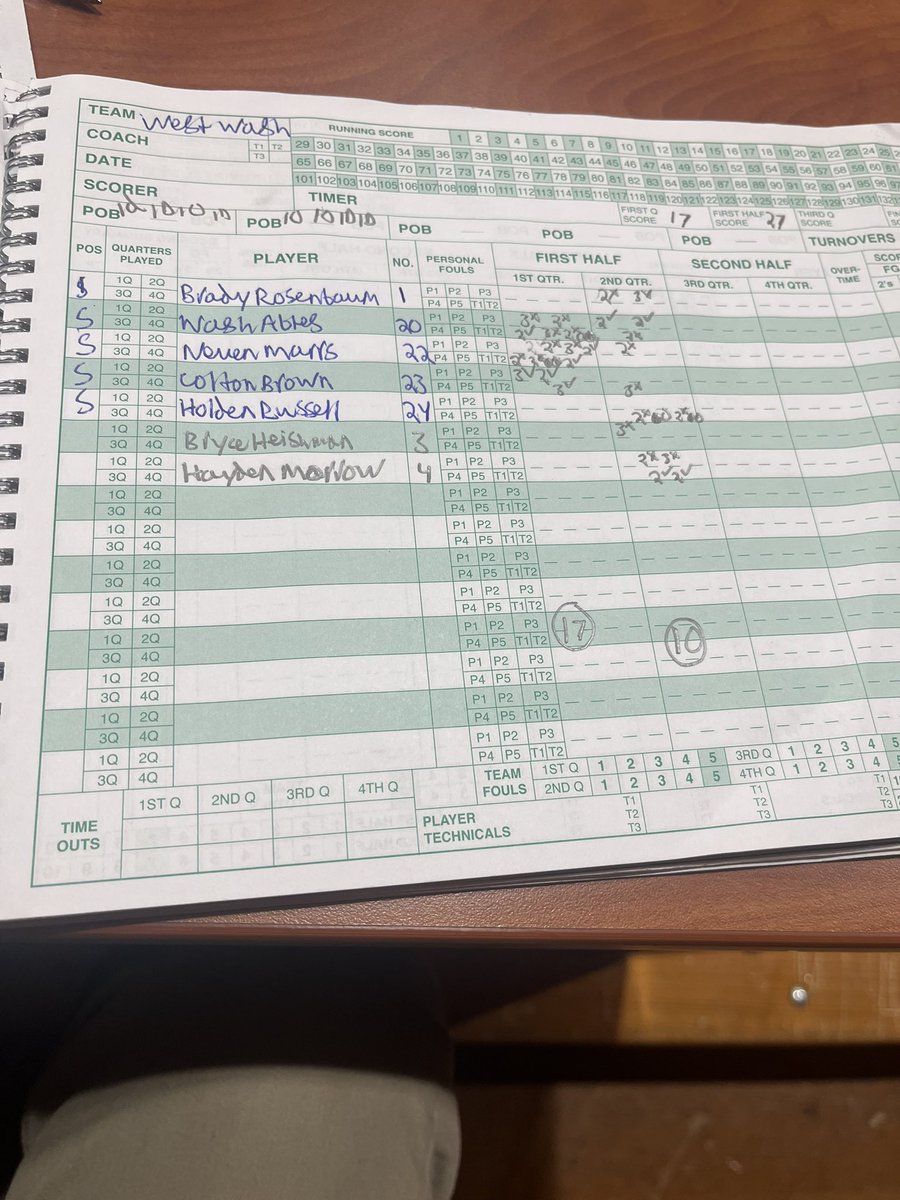 TEAM West Wash
RUNNING SCORE 1 2 3 4 5 6 7 8 9 10 11 12 13 14 15 16 17 18 19 20 21 22 23 24 25
COACH T1 T2 29 30 31 32 33 34 35 36 37 38 39 40 41 42 43 44 45 46 47 48 49 50 51 52 53 54 55 56 57 58 59 60
T3
DATE 65 66 67 68 69 70 71 72 73 74 75 76 77 78 79 80 81 82 83 84 85 86 87 88 89 90 91 92 93 94 95 96
101 102 103 104 105 106 107 108 109 110 111 112 113 114 115 116 117 118 119 120 121 122 123 124 125 126 127 128 129 130 131
SCORER TIMER
FIRST Q SCORE 17 FIRST HALF SCORE 27 THIRD Q SCORE
POB 10 10 10 10 POB 10 10 10 10 POB POB POB TURNOVERS
POS QUARTERS PLAYED PLAYER NO. PERSONAL FOULS FIRST HALF SECOND HALF OVER-TIME
1ST QTR. 2ND QTR. 3RD QTR. 4TH QTR. 2's
1Q 2Q P1 P2 P3
S 3Q 4Q Brady Rosenbaum 1 P4 P5 T1 T2 2x 3✓
1Q 2Q P1 P2 P3
S 3Q 4Q Wash Abtes 20 P4 P5 T1 T2 3x 2x 2✓ 2✓
1Q 2Q P1 P2 P3
S 3Q 4Q Neven Marrs 22 P4 P5 T1 T2 2x
1Q 2Q P1 P2 P3
S 3Q 4Q Colton Brown 23 P4 P5 T1 T2 3✓ 2✓
1Q 2Q P1 P2 P3
S 3Q 4Q Holden Russell 24 P4 P5 T1 T2 3✓ 3x
1Q 2Q P1 P2 P3
3Q 4Q Bryce Heishman 3 P4 P5 T1 T2
1Q 2Q P1 P2 P3 2x 3x
3Q 4Q Hayden Morrow 4 P4 P5 T1 T2 2✓ 2✓
1Q 2Q P1 P2 P3
3Q 4Q P4 P5 T1 T2
1Q 2Q P1 P2 P3
3Q 4Q P4 P5 T1 T2
1Q 2Q P1 P2 P3
3Q 4Q P4 P5 T1 T2
1Q 2Q P1 P2 P3
3Q 4Q P4 P5 T1 T2
1Q 2Q P1 P2 P3 17
3Q 4Q P4 P5 T1 T2 10
1Q 2Q P1 P2 P3
3Q 4Q P4 P5 T1 T2
1Q 2Q P1 P2 P3
3Q 4Q P4 P5 T1 T2
1Q 2Q P1 P2 P3
3Q 4Q P4 P5 T1 T2
TEAM FOULS 1ST Q 1 2 3 4 5 3RD Q 1 2 3 4 5
2ND Q 1 2 3 4 5 4TH Q 1 2 3 4
TIME OUTS 1ST Q 2ND Q 3RD Q 4TH Q
PLAYER TECHNICALS T1 T1 T1
T2 T2 T2
T3 T3 T3